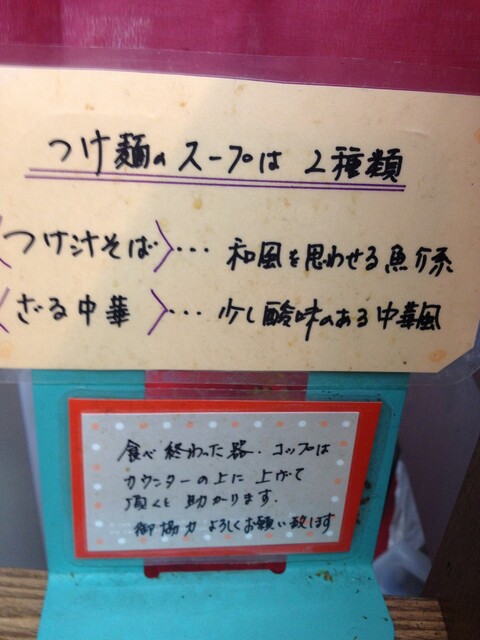 つけ麺のスープは2種類
〈つけ汁そば〉… 和風を思わせる魚介系
〈ざる中華〉… 少し酸味のある中華風
食べ終わった器、コップは
カウンターの上に上げて
頂くと助かります。
御協力よろしくお願い致します